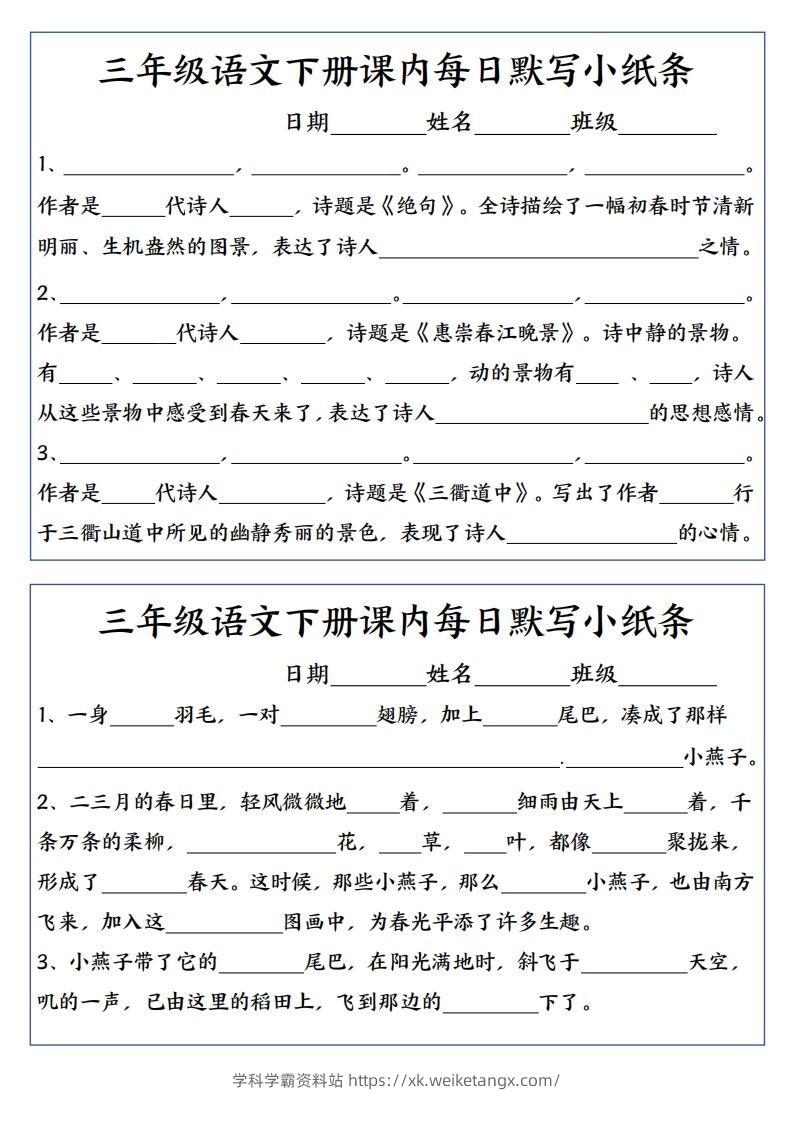 三年级语文下册课内每日默写小纸条
日期________姓名________班级________
1、________________，______________。______________，_______________。
作者是______代诗人______，诗题是《绝句》。全诗描绘了一幅初春时节清新
明丽、生机盎然的图景，表达了诗人______________________________之情。
2、_______________，_______________。________________，_______________。
作者是_______代诗人________，诗题是《惠崇春江晚景》。诗中静的景物。
有_____、______、______、______、______，动的景物有____ 、____，诗人
从这些景物中感受到春天来了，表达了诗人____________________的思想感情。
3、_______________，________________。_______________，_______________。
作者是_____代诗人__________，诗题是《三衢道中》。写出了作者_______行
于三衢山道中所见的幽静秀丽的景色，表现了诗人________________的心情。
三年级语文下册课内每日默写小纸条
日期________姓名________班级________
1、一身______羽毛，一对_________翅膀，加上_______尾巴，凑成了那样
_________________________________________________.___________小燕子。
2、二三月的春日里，轻风微微地_____着，_______细雨由天上______着，千
条万条的柔柳，______________花，____草，____叶，都像_______聚拢来，
形成了________春天。这时候，那些小燕子，那么________小燕子，也由南方
飞来，加入这___________图画中，为春光平添了许多生趣。
3、小燕子带了它的________尾巴，在阳光满地时，斜飞于__________天空，
叽的一声，已由这里的稻田上，飞到那边的_________下了。
学科学霸资料站 https://xk.weiketangx.com/